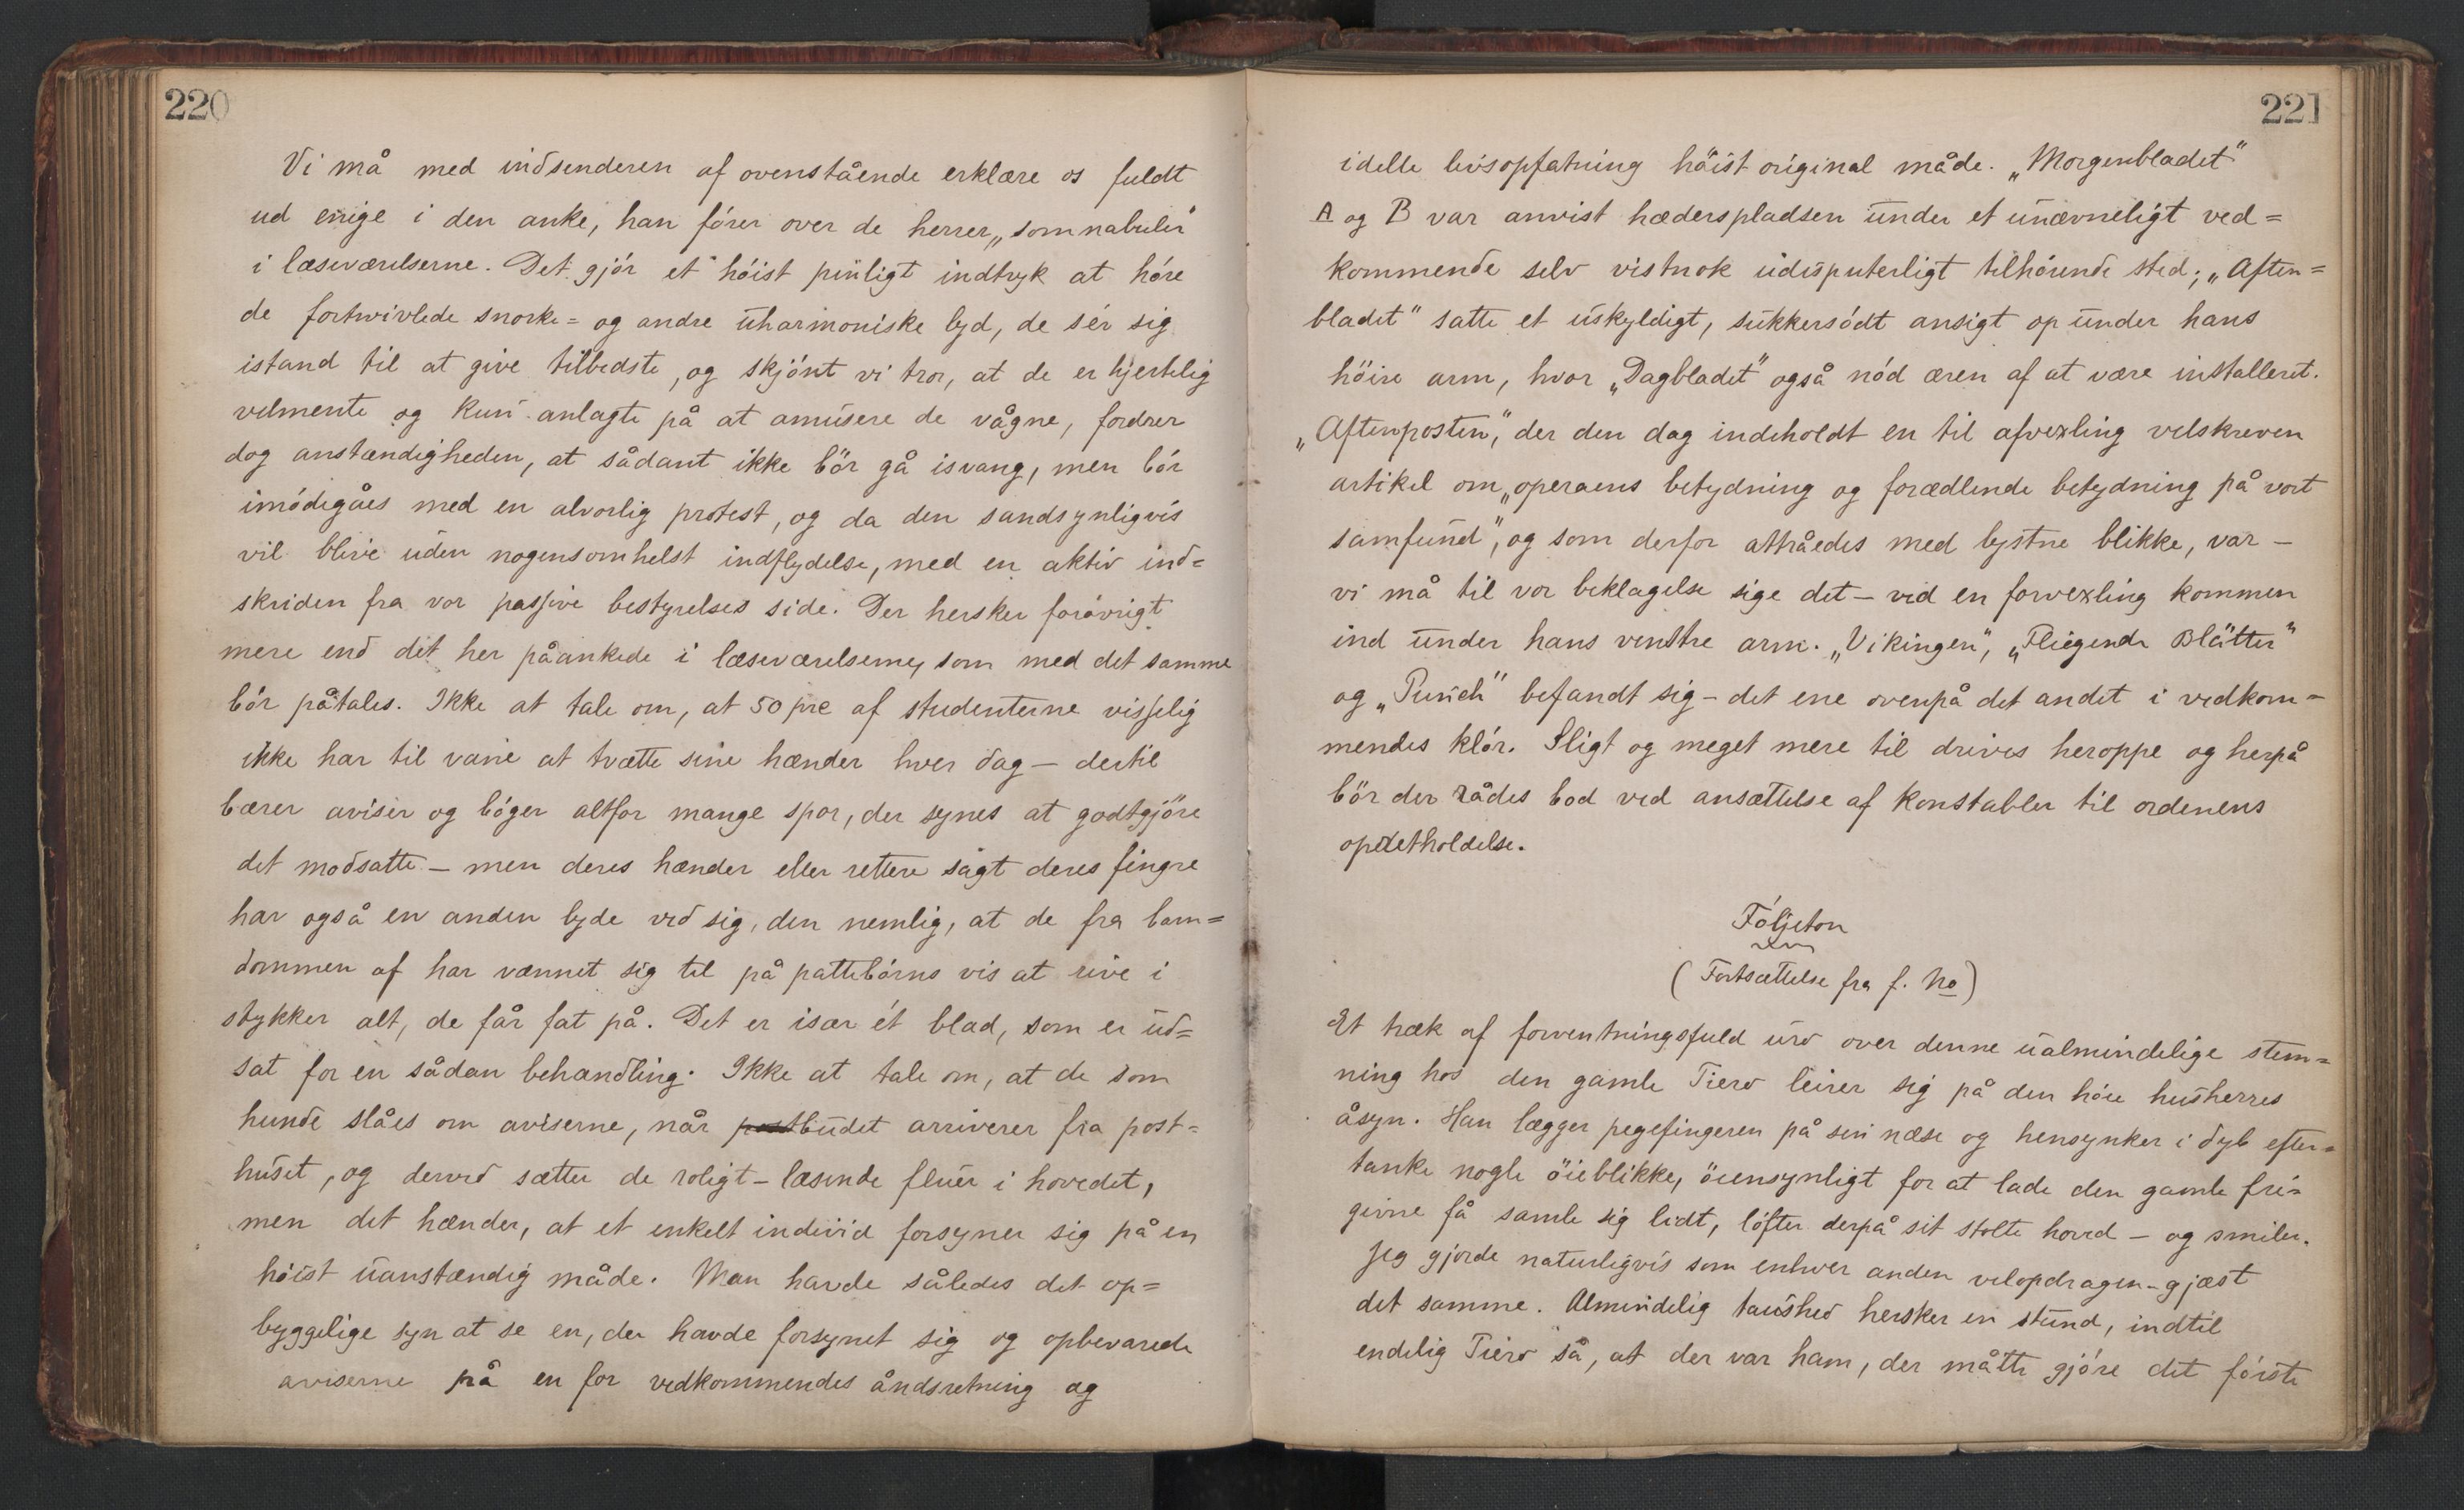 220
Vi må med indsenderen af ovenstående erklære os fuldt
ud enige i den anke, han fører over de herrer „somnabuler"
i læseværelserne. Det gjör et höist pinligt indtryk at höre
de fortvivlede snorke= og andre uharmoniske lyd, de sér sig
istand til at give tilbedste, og skjönt vi tror, at de er hjertelig
velmente og kun anlagte på at amusere de vågne, fordrer
dog anstændigheden, at sådant ikke bör gå isvang, men bör
imödegåes med en alvorlig protest, og da den sandsynligvis
vil blive uden nogensomhelst indflydelse, med en aktiv ind=
skriden fra vor passive bestyrelses side. Der hersker forövrigt
mere end det her påankede i læseværelserne, som med det samme
bör påtales. Ikke at tale om, at 50 prc af studenterne visselig
ikke har til vane at tvætte sine hænder hver dag — dertil
bærer aviser og böger altfor mange spor, der synes at godtgjöre
det modsatte — men deres hænder eller rettere sagt deres fingre
har også en anden lyde ved sig, den nemlig, at de fra barn=
dommen af har vænnet sig til på pattebörns vis at rive i
stykker alt, de får fat på. Det er især ét blad, som er ud=
sat for en sådan behandling. Ikke at tale om, at de som
hunde slåes om aviserne, når postbudet arriverer fra post=
huset, og derved sætter de roligt-læsende fluer i hovedet,
men det hænder, at et enkelt individ forsyner sig på en
höist uanstændig måde. Man havde således det op=
byggelige syn at se en, der havde forsynet sig og opbevarede
aviserne på en for vedkommendes åndsretning og
221
idelle livsopfatning höist original måde. „Morgenbladet"
A og B var anvist hæderspladsen under et unævneligt ved=
kommende selv vistnok udisputerligt tilhörende sted; „Aften=
bladet" satte et uskyldigt, sukkersödt ansigt op under hans
höire arm, hvor „Dagbladet" også nöd æren af at være installeret.
„Aftenposten", der den dag indeholdt en til afvexling velskreven
artikel om „operaens betydning og forædlende betydning på vort
samfund", og som derfor attråedes med lystne blikke, var —
vi må til vor beklagelse sige det — ved en forvexling kommen
ind under hans venstre arm. „Vikingen", „Fliegende Blätter"
og „Punch" befandt sig — det ene ovenpå det andet i vedkom=
mendes klör. Sligt og meget mere til drives heroppe og herpå
bör der rådes bod ved ansættelse af konstabler til ordenens
opretholdelse.
Följeton
(Fortsættelse fra f. No)
Et træk af forventningsfuld uro over denne ualmindelige stem=
ning hos den gamle Tiero leirer sig på den höie husherres
åsyn. Han lægger pegefingeren på sin næse og hensynker i dyb efter=
tanke nogle öieblikke, öiensynligt for at lade den gamle fri=
givne få samle sig lidt, löfter derpå sit stolte hoved — og smiler.
Jeg gjorde naturligvis som enhver anden velopdragen gjæst
det samme. Almindelig taushed hersker en stund, indtil
endelig Tiero så, at der var ham, der måtte gjöre det förste